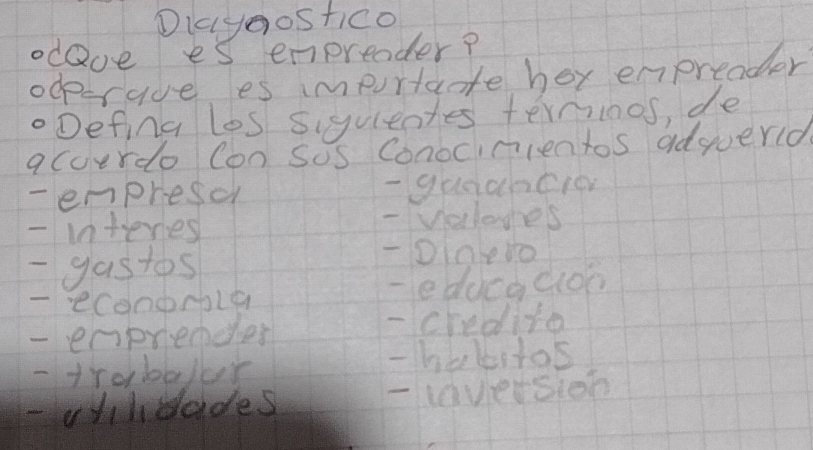 Diagnostico
o¿Que es emprender?
o¿Porque es importante hoy emprender
o Defina los siguientes terminos, de
acuerdo con sus conocimientos adquerid
- empresa
- interes
- gastos
- economia
- emprender
- trabajar
- utilidades
- ganancia
- valores
- Dinero
- educacion
- credito
- habitos
- inversion